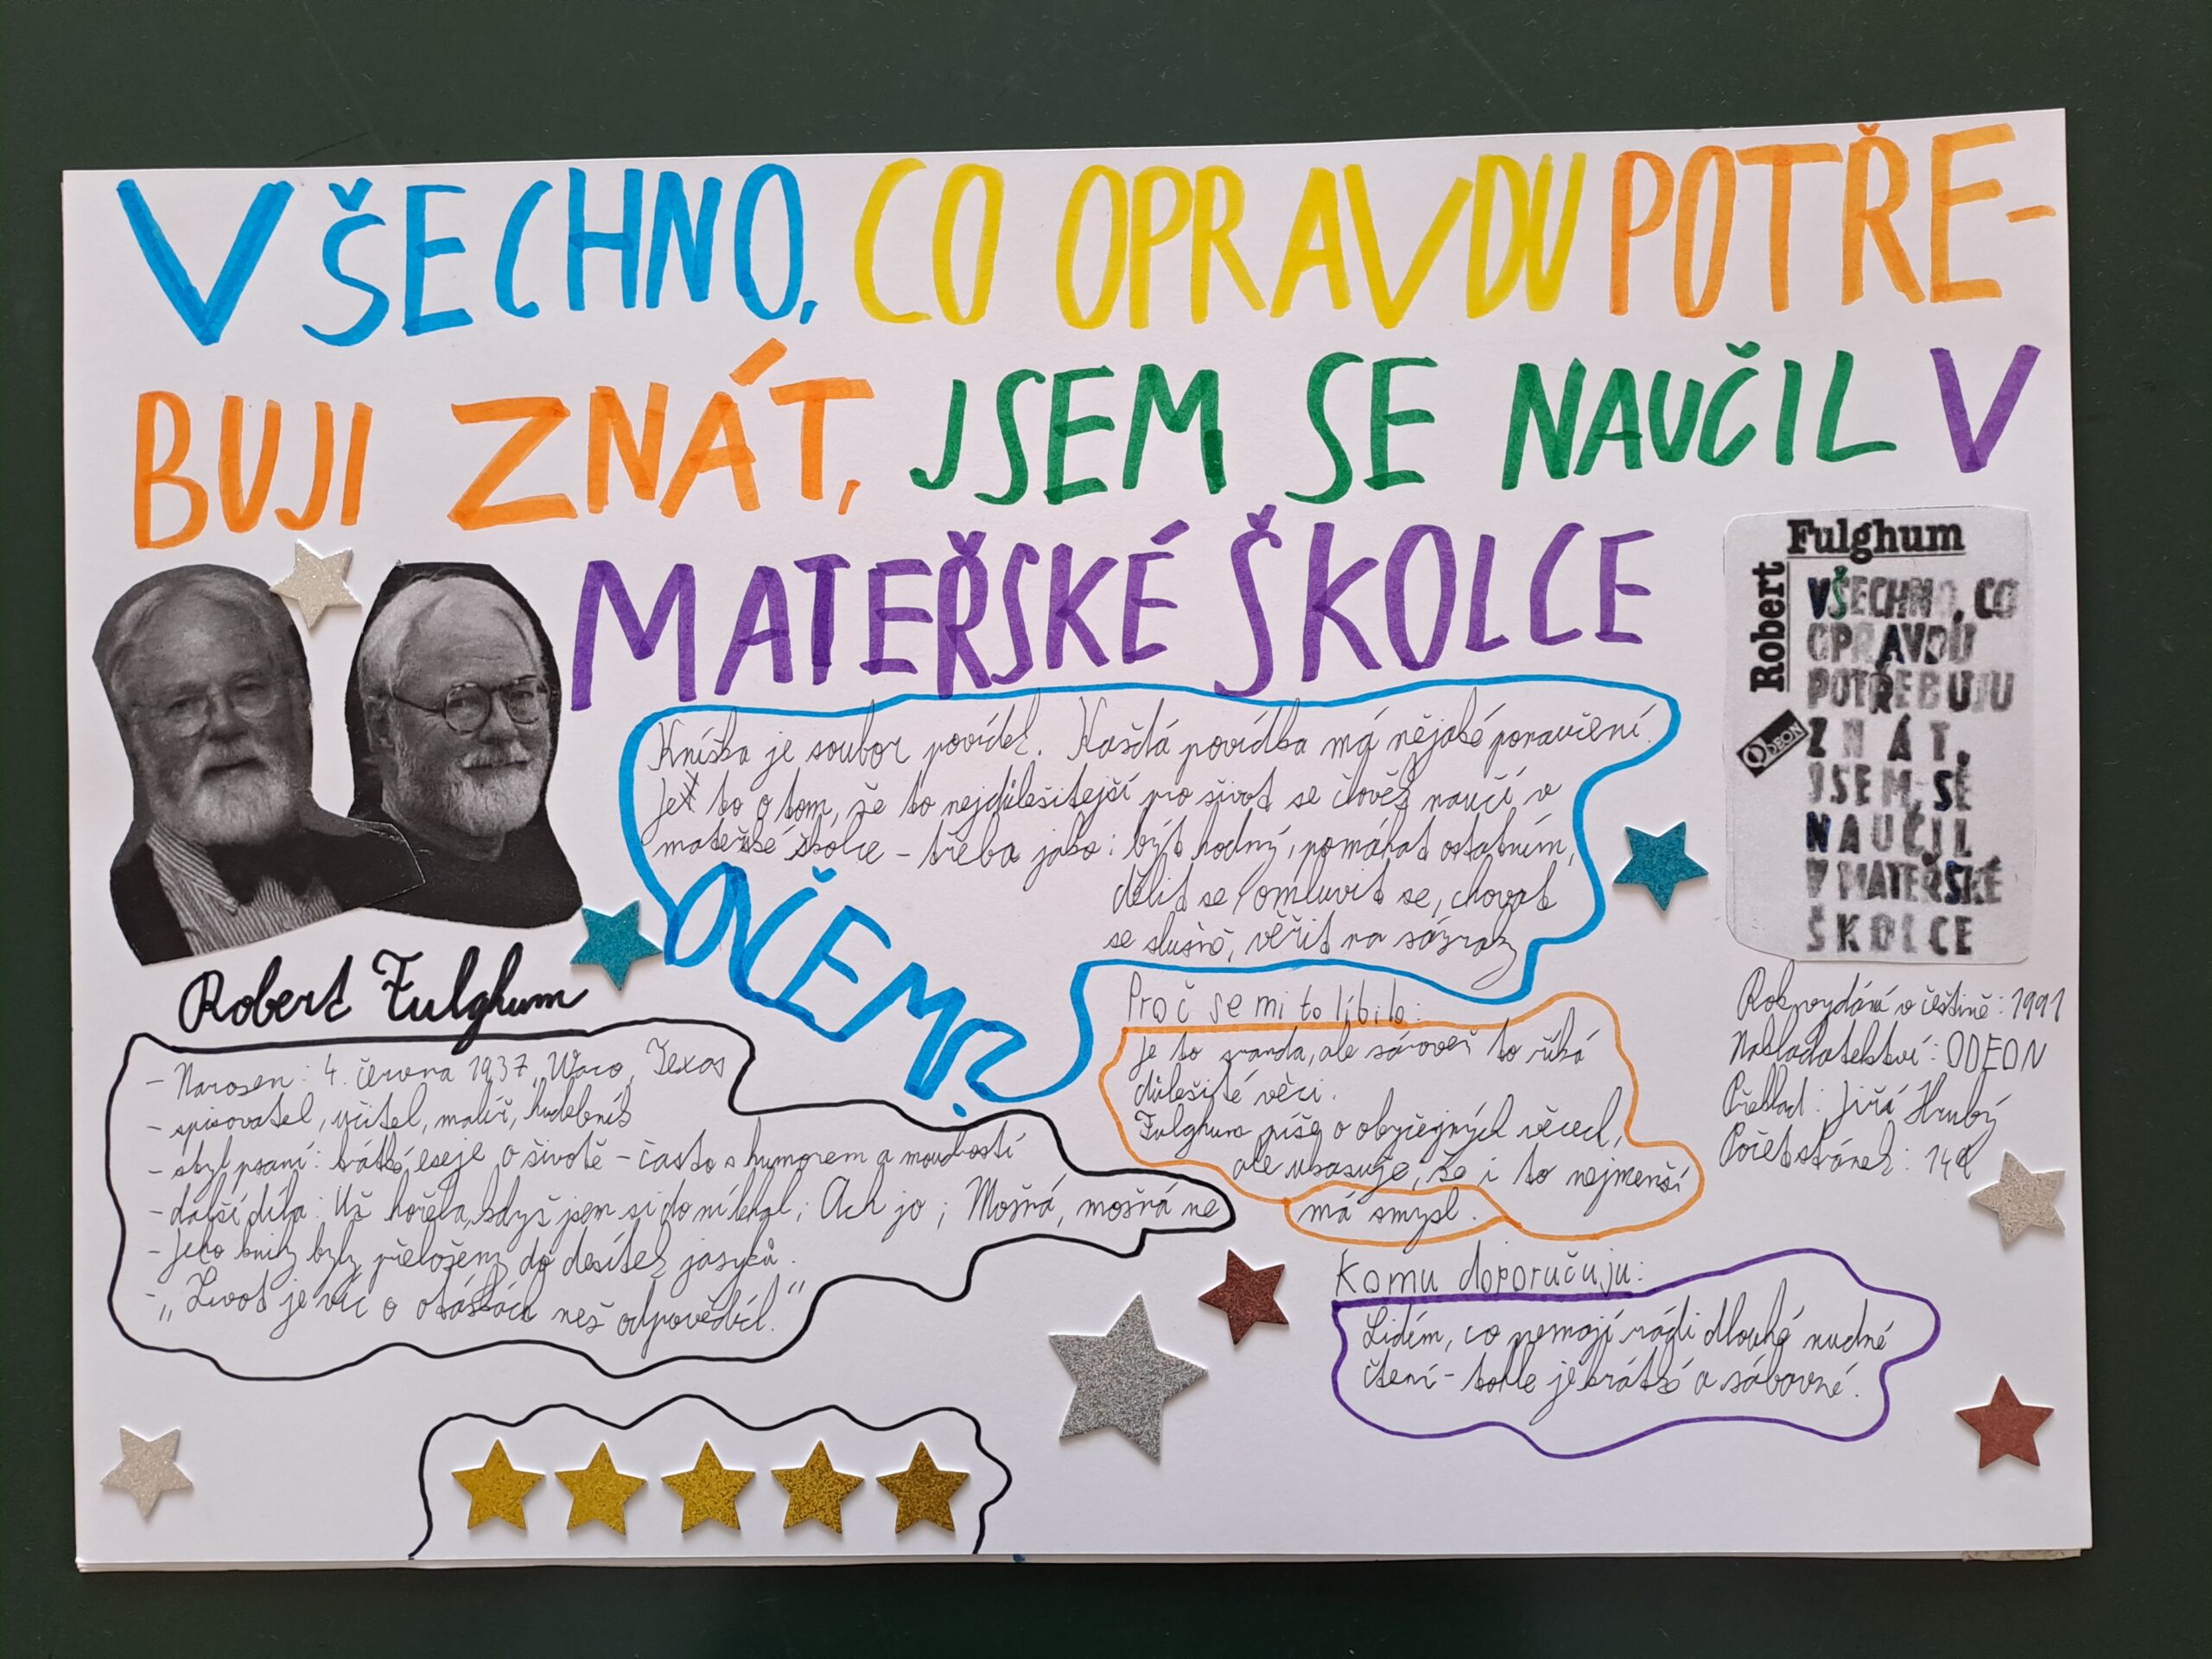 VŠECHNO, CO OPRAVDU POTŘE-
BUJI ZNÁT, JSEM SE NAUČIL V
MATEŘSKÉ ŠKOLCE
Fulghum
Robert
VŠECHNO, CO
OPRAVDU
POTŘEBUJU
ZNÁT,
JSEM SE
NAUČIL
V MATEŘSKÉ
ŠKOLCE
ODEON
Knížka je soubor povídek. Každá povídka má nějaké ponaučení.
Je to o tom, že to nejdůležitější pro život se člověk naučí v
mateřské školce - třeba jako: být hodný, pomáhat ostatním,
dělit se, omluvit se, chovat
se slušně, věřit na zázraky
O ČEM?
Robert Fulghum
- Narozen: 4. června 1937, Waco, Texas
- spisovatel, učitel, malíř, hudebník
- styl psaní: krátké eseje o životě - často s humorem a moudrostí
- další díla: Už hořela, když jsem si do ní lehal; Ach jo; Možná, možná ne
- Jeho knihy byly přeloženy do desítek jazyků.
- „Život je víc o otázkách než odpovědích."
Proč se mi to líbilo:
Je to sranda, ale zároveň to říká
důležité věci.
Fulghum píše o obyčejných věcech,
ale ukazuje, že i to nejmenší
má smysl.
Rok vydání v češtině: 1991
Nakladatelství: ODEON
Překlad: Jiří Hrubý
Počet stránek:
Komu doporučuju:
Lidem, co nemají rádi dlouhé nudné
čtení - tohle je krátké a zábavné.